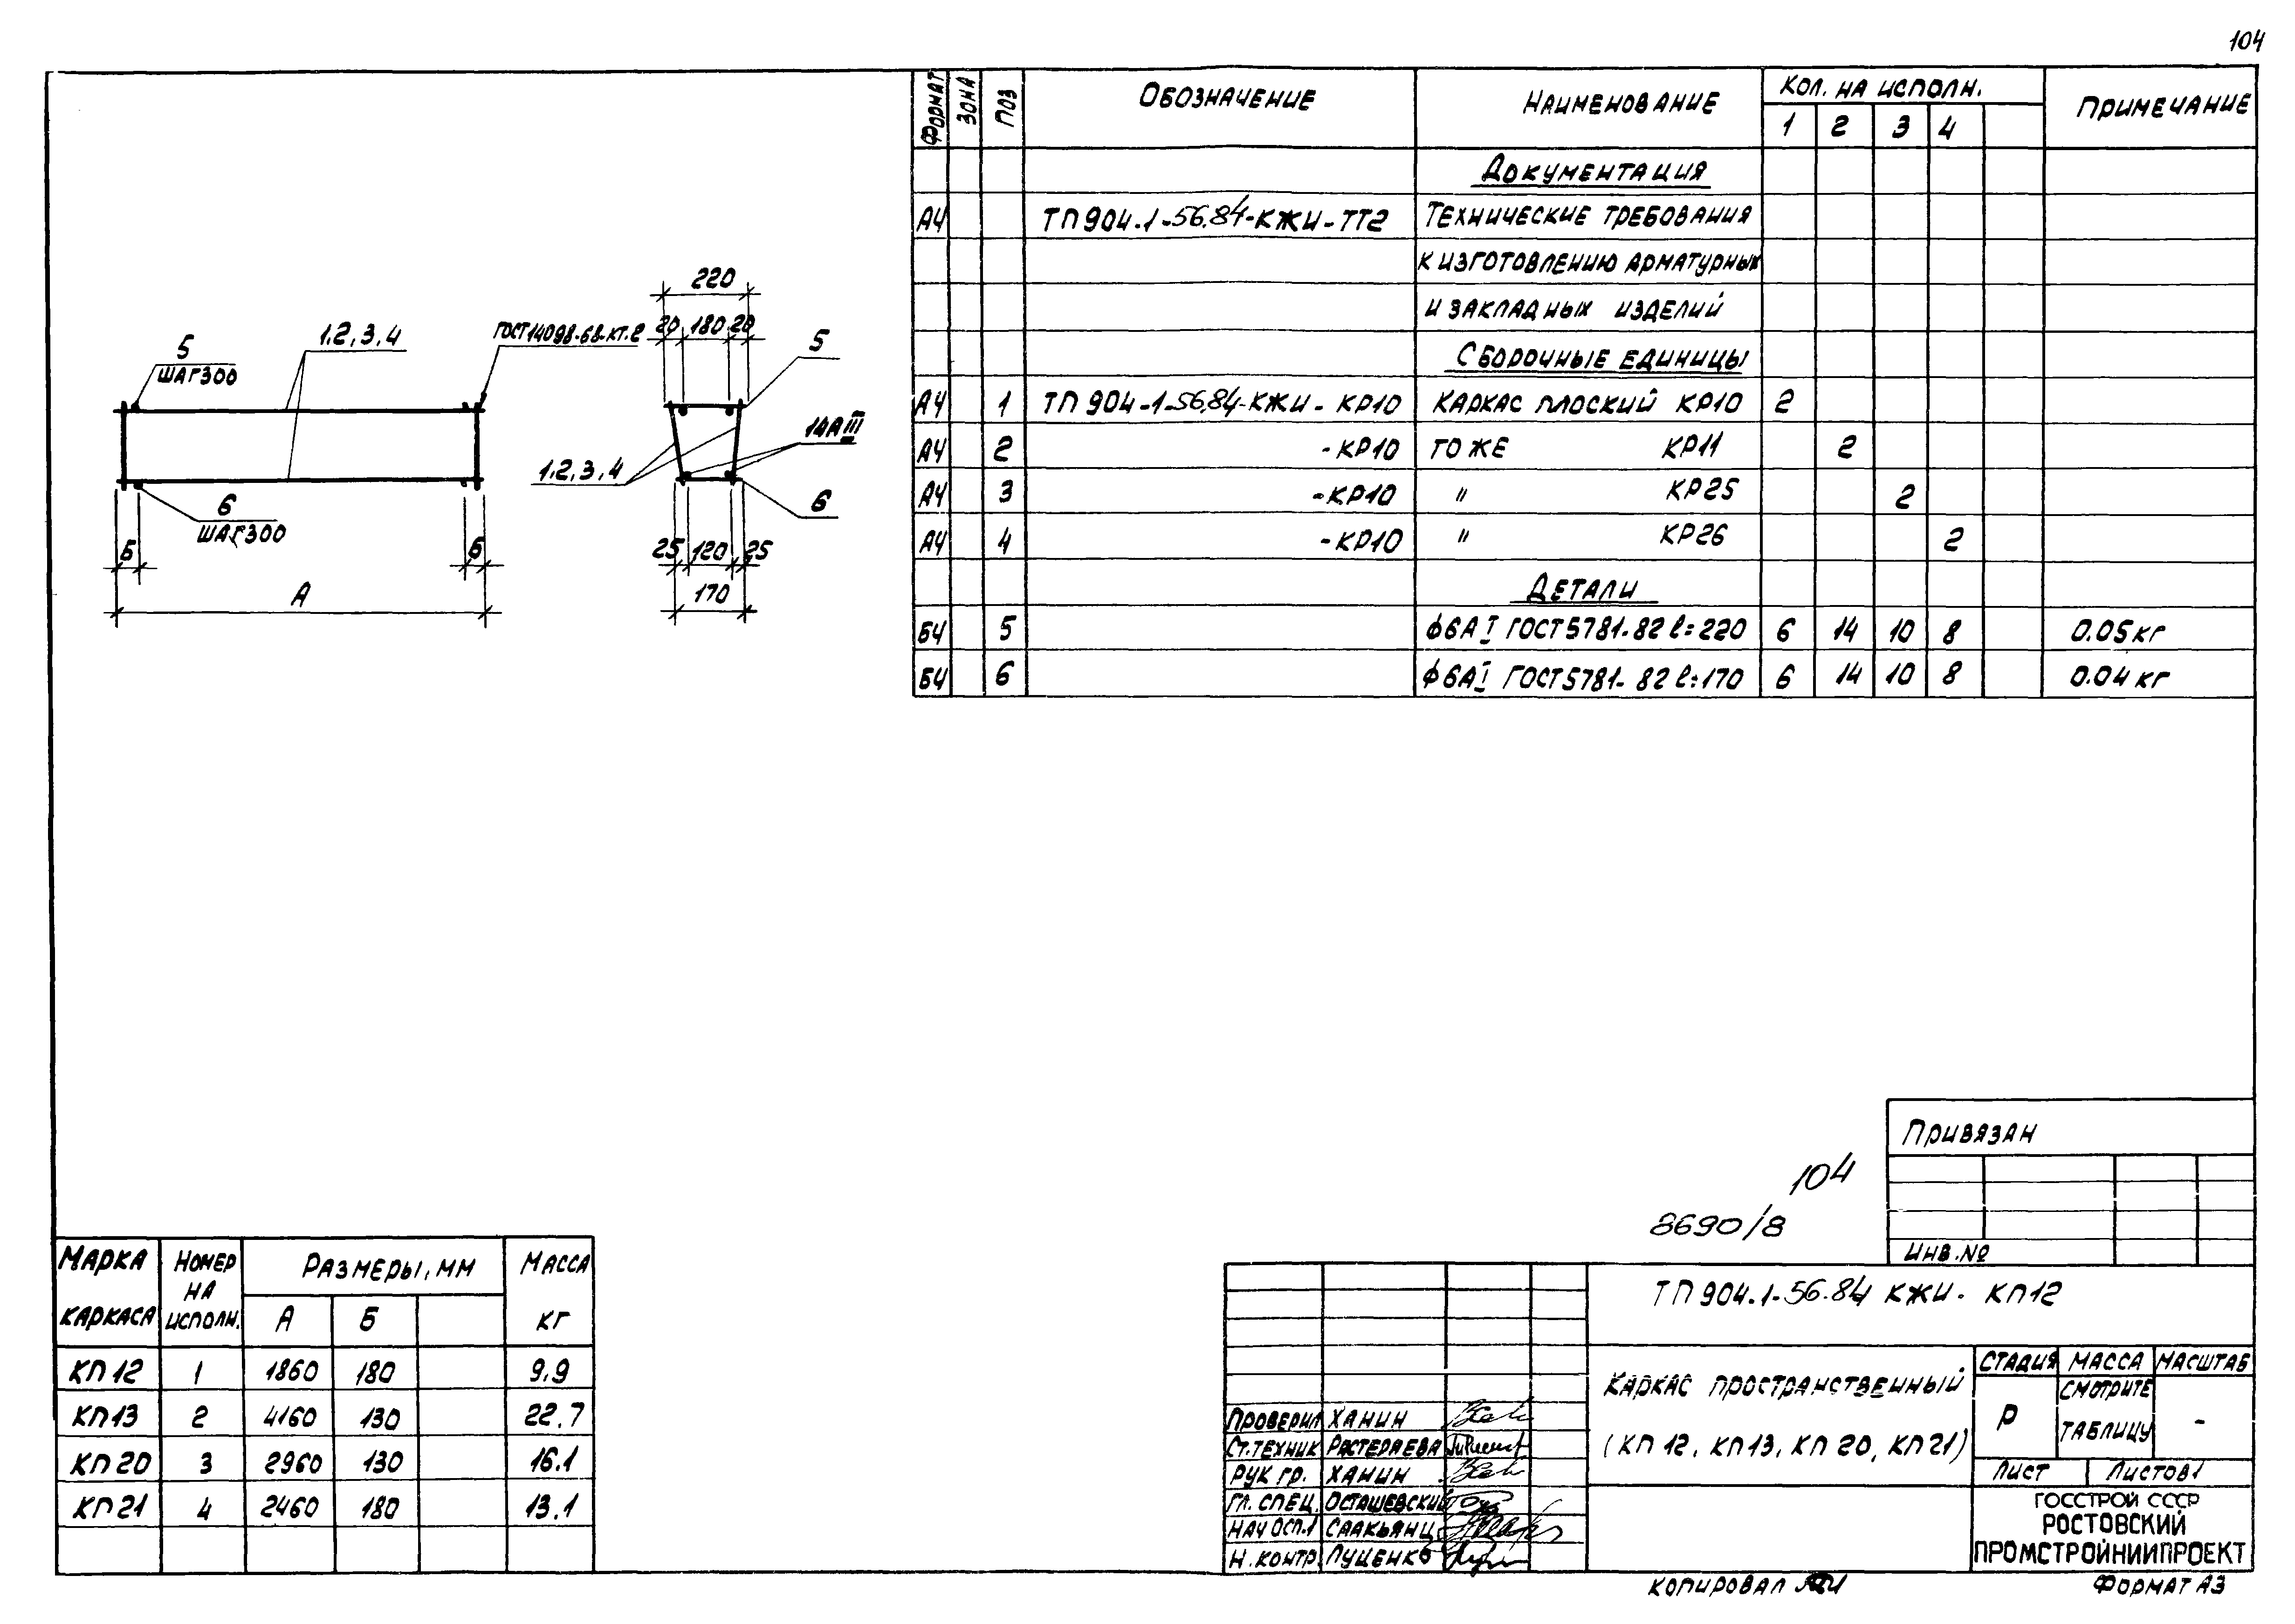 104
ФОРМАТ ЗОНА ПОЗ ОБОЗНАЧЕНИЕ НАИМЕНОВАНИЕ КОЛ. НА ИСПОЛН. ПРИМЕЧАНИЕ
1 2 3 4
ДОКУМЕНТАЦИЯ
А4 ТП904.1-56.84-КЖИ-ТТ2 ТЕХНИЧЕСКИЕ ТРЕБОВАНИЯ
К ИЗГОТОВЛЕНИЮ АРМАТУРНЫХ
И ЗАКЛАДНЫХ ИЗДЕЛИЙ
СБОРОЧНЫЕ ЕДИНИЦЫ
А4 1 ТП 904-1-56.84-КЖИ-КР10 КАРКАС ПЛОСКИЙ КР10 2
А4 2 -КР10 ТО ЖЕ КР11 2
А4 3 -КР10 " КР25 2
А4 4 -КР10 " КР26 2
ДЕТАЛИ
БЧ 5 ф6АI ГОСТ5781-82 ℓ=220 6 14 10 8 0.05кг
БЧ 6 ф6АI ГОСТ5781-82 ℓ=170 6 14 10 8 0.04кг
5
ШАГ300
1,2,3,4
ГОСТ14098-68-КТ-2
6
ШАГ300
Б
Б
А
220
20 180 20
5
14АIII
1,2,3,4
6
25 120 25
170
ПРИВЯЗАН
ИНВ.№
104
8690/8
МАРКА КАРКАСА НОМЕР НА ИСПОЛН. РАЗМЕРЫ, ММ МАССА КГ
А Б
КП12 1 1860 180 9.9
КП13 2 4160 130 22.7
КП20 3 2960 130 16.1
КП21 4 2460 180 13.1
ТП904.1-56.84 КЖИ-КП12
КАРКАС ПРОСТРАНСТВЕННЫЙ
(КП12, КП13, КП20, КП21)
СТАДИЯ МАССА МАСШТАБ
Р СМОТРИТЕ ТАБЛИЦУ -
ЛИСТ ЛИСТОВ1
ПРОВЕРИЛ ХАНИН
СТ.ТЕХНИК РАСТЕРЯЕВА
РУК ГР. ХАНИН
ГЛ. СПЕЦ. ОСТАШЕВСКИЙ
НАЧ ОСП-1 СААКЬЯНЦ
Н.КОНТР. ЛУЦЕНКО
ГОССТРОЙ СССР
РОСТОВСКИЙ
ПРОМСТРОЙНИИПРОЕКТ
КОПИРОВАЛ
ФОРМАТ А3